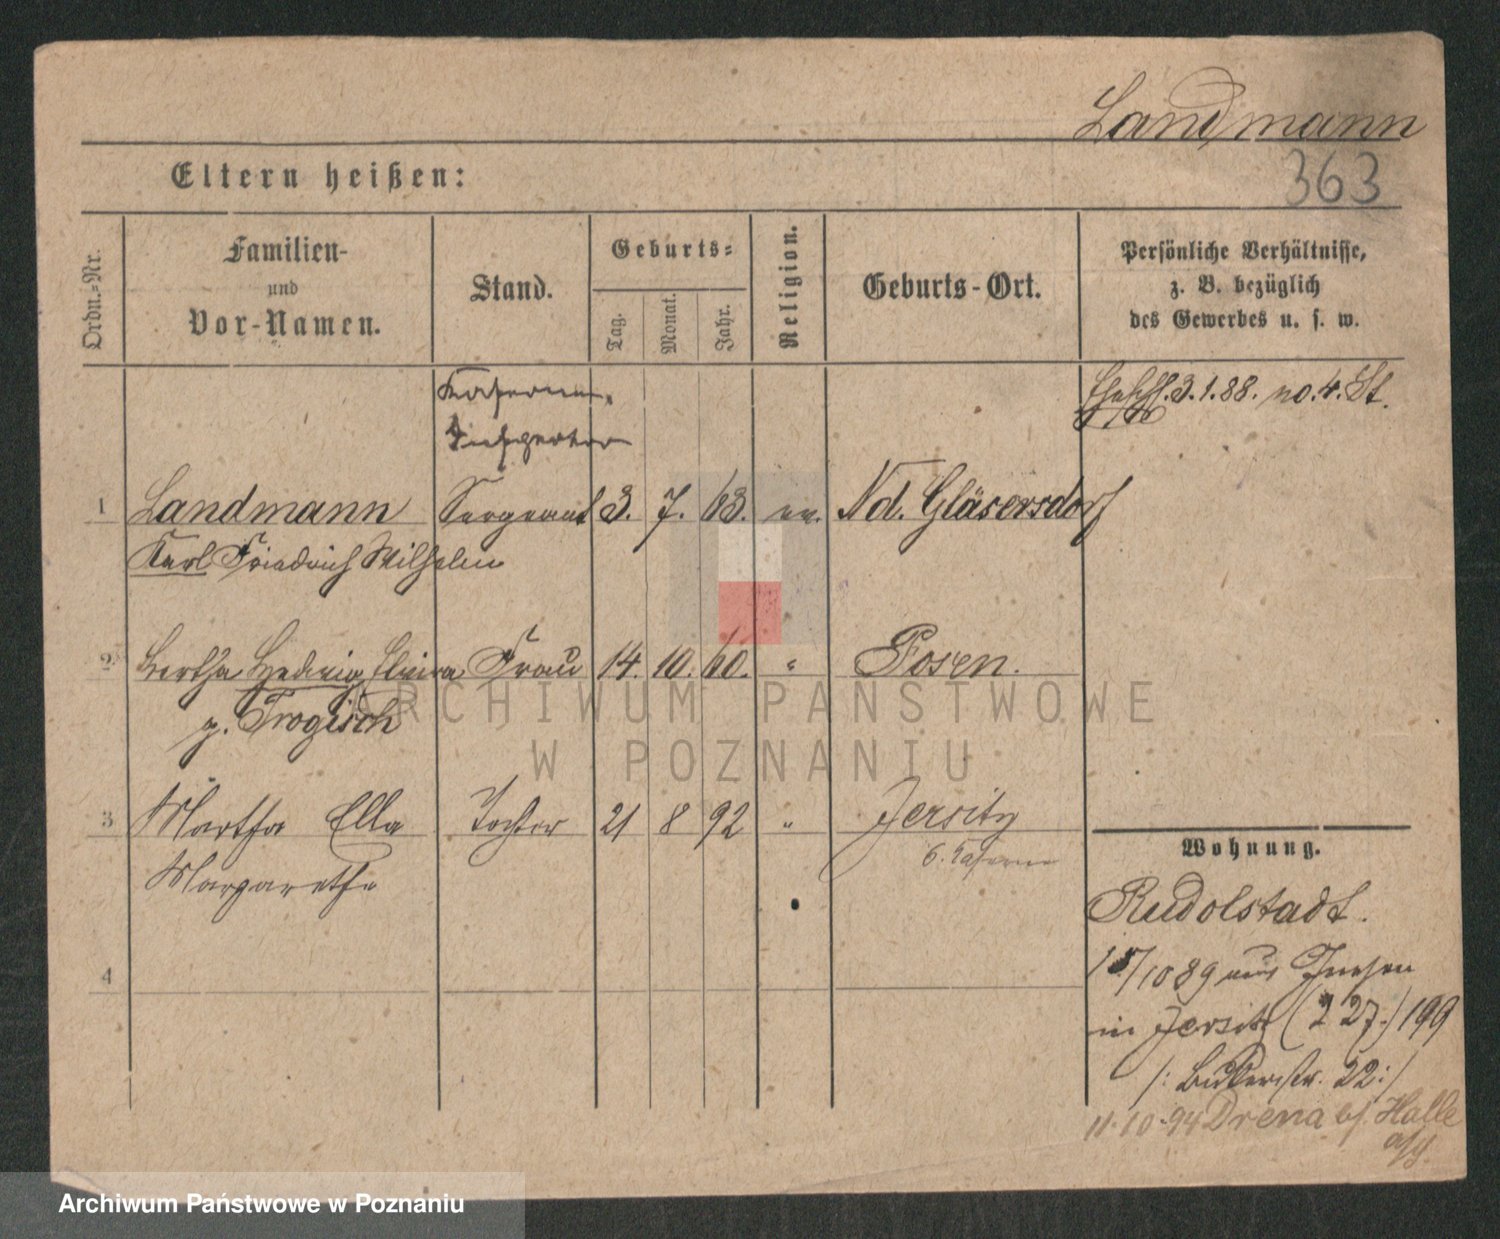 Landmann
363
Eltern heißen:
Ordn.-Nr.
Familien-
und
Vor-Namen.
Stand.
Geburts-
Tag.
Monat.
Jahr.
Religion.
Geburts-Ort.
Persönliche Verhältnisse,
z. B. bezüglich
des Gewerbes u. s. w.
Kasernen-
Inspector
3.1.88. no. 4. St.
1 Landmann Sergeant 3. 7. 63. ev. Nd. Gläsersdorf
Karl Friedrich Wilhelm
2 Bertha Hedwig Elvira Frau 14. 10. 60. " Posen.
g. Trogisch
3 Martha Ella Tochter 21 8 92 " Jersitz
6. Kaserne
Margarethe
4
Wohnung.
Rudolstadt.
/10 89 aus
in Jersitz (227.) 199
/: Bukerstr. 22 :/
11.10.94 b/ Halle
ARCHIWUM PAŃSTWOWE
W POZNANIU
Archiwum Państwowe w Poznaniu